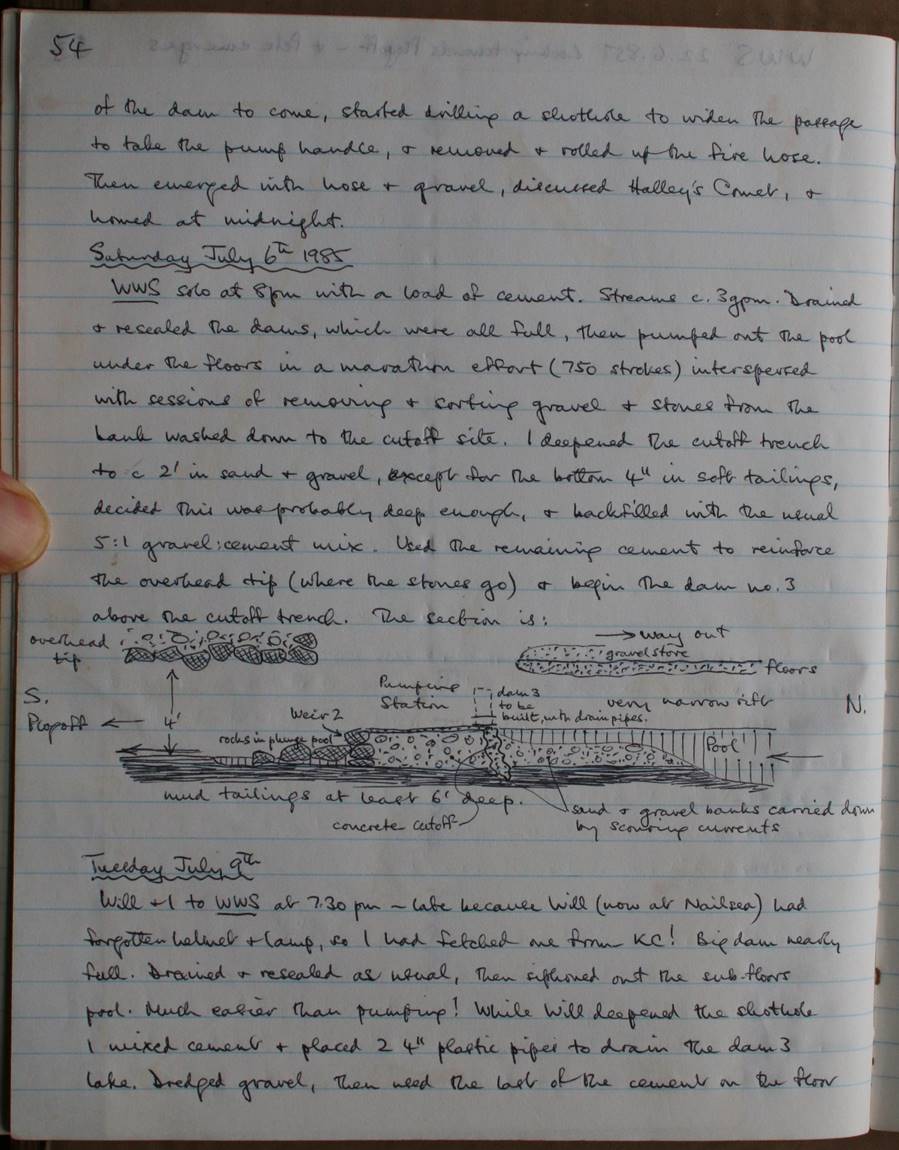 54
of the dam to come, started drilling a shothole to widen the passage
to take the pump handle, & removed & rolled up the fire hose.
Then emerged with hose & gravel, discussed Halley's Comet, &
homed at midnight.
Saturday July 6th 1985
WWS solo at 8pm with a load of cement. Streams c. 3gpm. Drained
& resealed the dams, which were all full, then pumped out the pool
under the floors in a marathon effort (750 strokes) interspersed
with sessions of removing & sorting gravel & stones from the
bank washed down to the cutoff site. I deepened the cutoff trench
to c 2' in sand & gravel, except for the bottom 4" in soft tailings,
decided this was probably deep enough, & backfilled with the usual
5:1 gravel:cement mix. Used the remaining cement to reinforce
the overhead tip (where the stones go) & begin the dam no. 3
above the cutoff trench. The section is:
overhead
tip
→ way out
gravel store
floors
S.
Plopoff ←
4'
Weir 2
rocks in plunge pool
Pumping
Station
dam 3
to be
built, with drain pipes.
very narrow rift
N.
Pool
mud tailings at least 6' deep.
concrete cutoff
sand & gravel banks carried down
by scouring currents
Tuesday July 9th
Will +1 to WWS at 7.30 pm - late because Will (now at Nailsea) had
forgotten helmet & lamp, so I had fetched one from KC! Big dam nearly
full. Drained & resealed as usual, then siphoned out the sub-floors
pool. Much easier than pumping! While Will deepened the shothole
I mixed cement & placed 2 4" plastic pipes to drain the dam 3
lake. Dredged gravel, then used the last of the cement on the floor